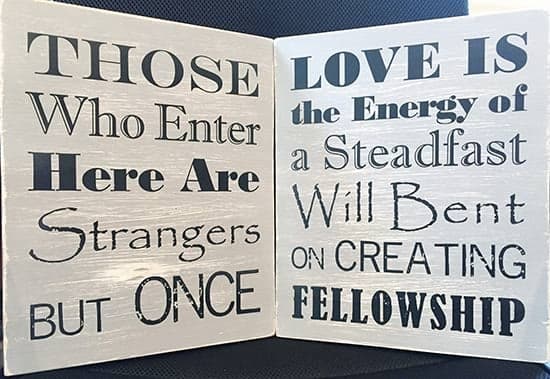 THOSE
Who Enter
Here Are
Strangers
BUT ONCE
LOVE IS
the Energy of
a Steadfast
Will Bent
ON CREATING
FELLOWSHIP